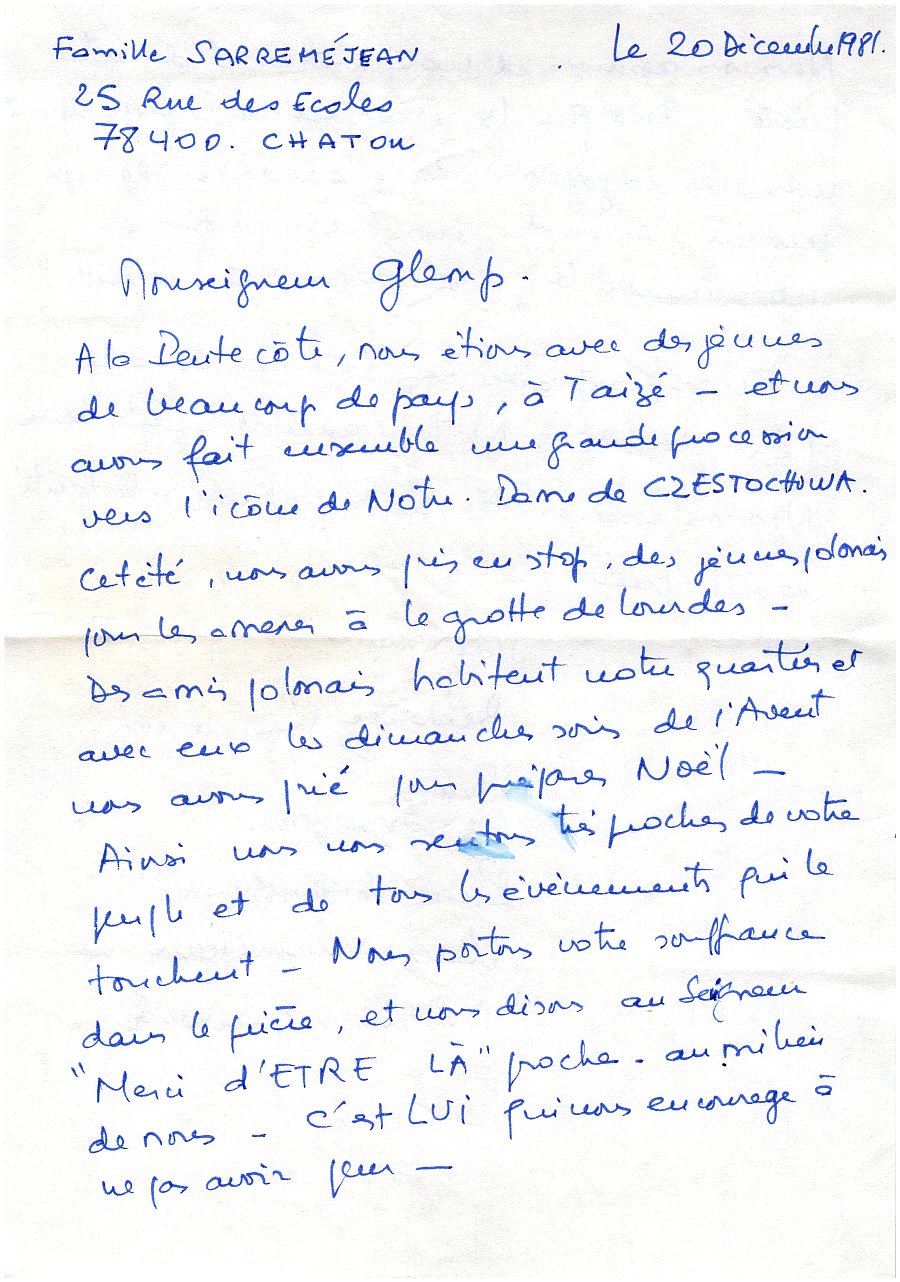 Famille SARREMÉJEAN
Le 20 Décembre 1981.
25 Rue des Ecoles
78400. CHATOU
Monseigneur Glemp.
A la Pentecôte, nous étions avec des jeunes
de beaucoup de pays, à Taizé – et nous
avons fait ensemble une grande procession
vers l'icône de Notre. Dame de CZESTOCHOWA.
Cet été, nous avons pris en stop, des jeunes polonais
pour les amener à la grotte de Lourdes –
Des amis polonais habitent notre quartier et
avec eux les dimanches soirs de l'Avent
nous avons prié pour préparer Noël –
Ainsi nous nous sentons très proches de votre
peuple et de tous les évènements qui le
touchent – Nous portons votre souffrance
dans la prière, et nous disons au Seigneur
"Merci d'ETRE LÀ" proche. au milieu
de nous – C'est LUI qui nous encourage à
ne pas avoir peur –